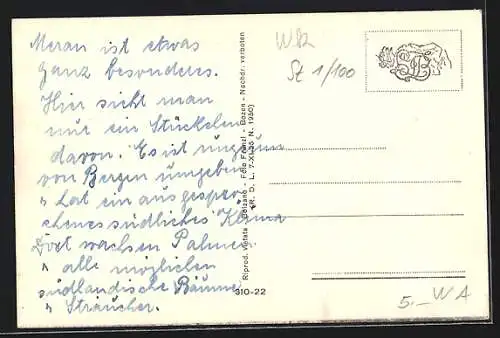 Meran ist etwas
ganz besonderes.
Hier sieht man
nur ein Stückchen
davon. Es ist ringsum
von Bergen umgeben
u hat ein ausgespro-
chenes südliches Klima
Dort wachsen Palmen
u alle möglichen
südländische Bäume
u Sträucher.
Riprod. vietata - Bolzano - Foto Fränzl - Bozen - Nachdr. verboten
(R. D. L. 7-XI-35 N. 1950)
310-22
W82
St 1/100
5.- WA